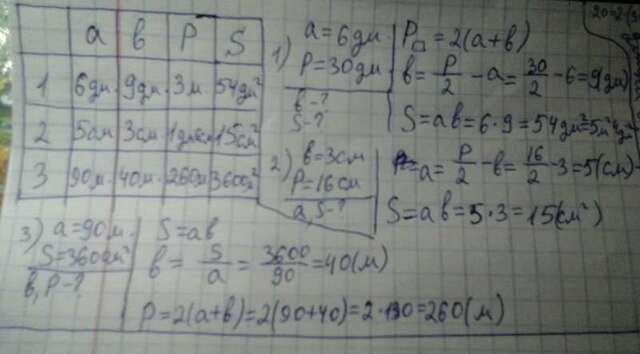 a в P S
1 6дм 9дм 3м 54дм²
2 5см 3см 1дм6см 15см²
3 90м 40м 260м 3600м²
1) a=6дм
P=30дм
в-?
S-?
P□=2(a+в)
в=P/2-a=30/2-6=9(дм)
S=aв=6·9=54дм²
2) в=3см
P=16см
a,S-?
a=P/2-в=16/2-3=5(см)
S=aв=5·3=15(см²)
3) a=90м
S=3600м²
в,P-?
S=aв
в=S/a=3600/90=40(м)
P=2(a+в)=2(90+40)=2·130=260(м)